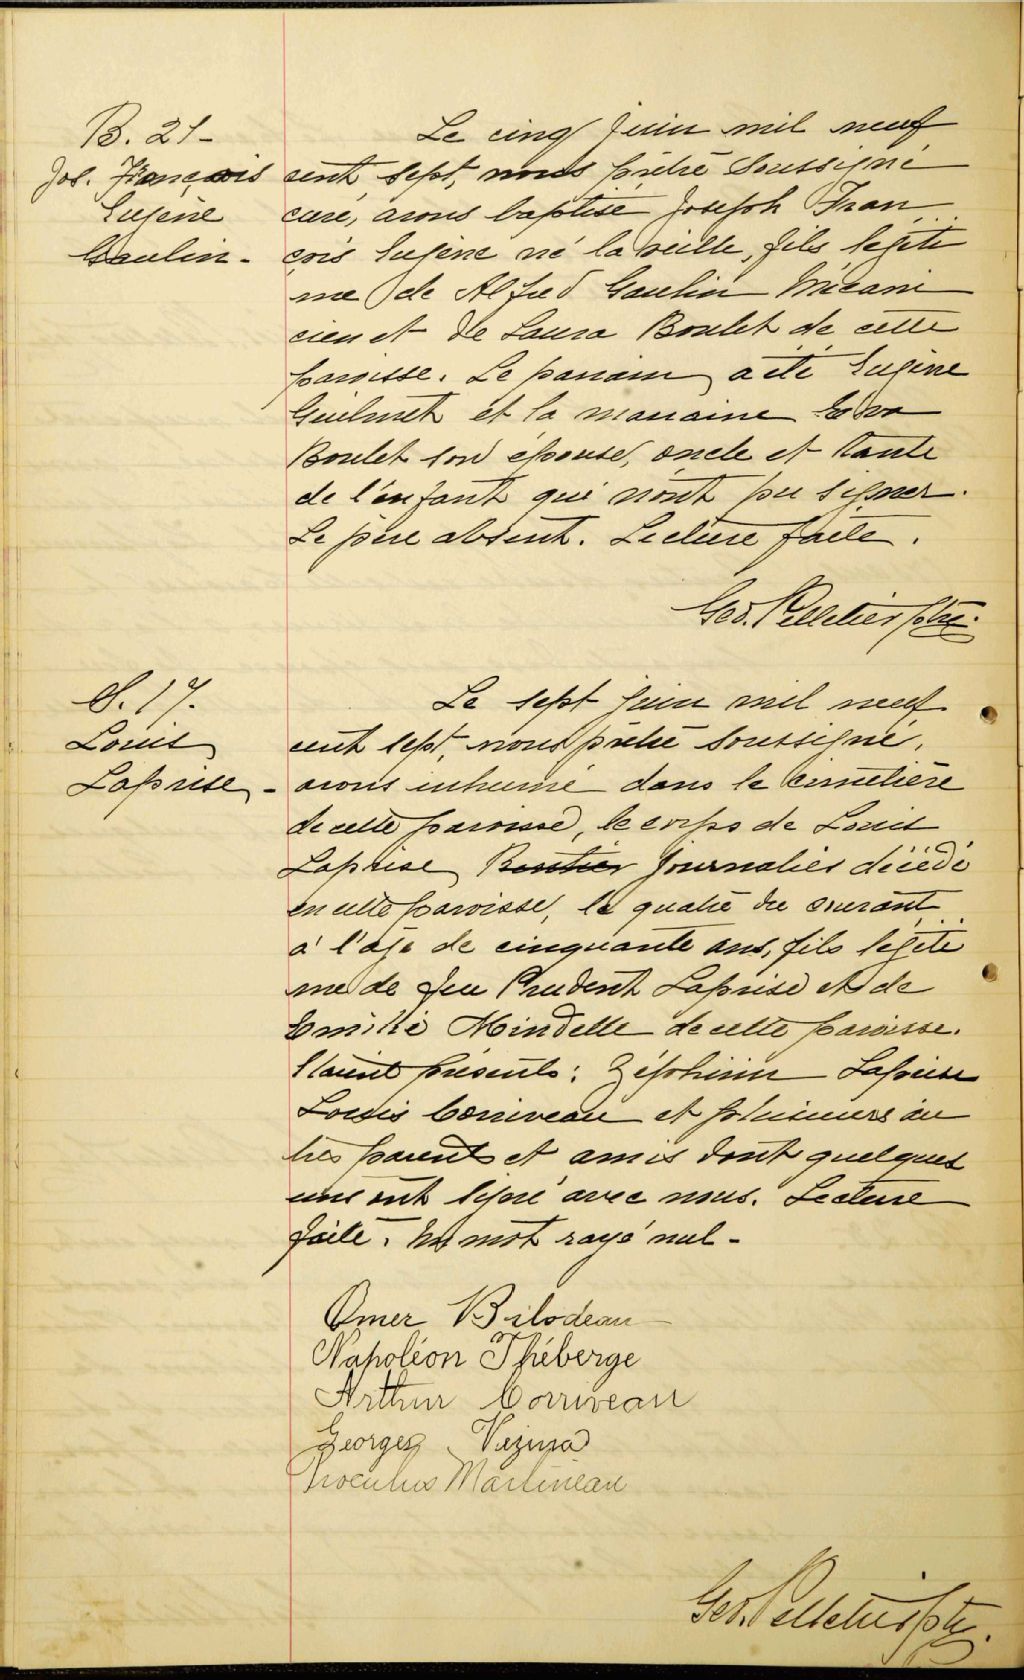 B. 21-
Jos. François
Eugène
Gaulin-
Le cinq juin mil neuf
cent sept, nous prêtre soussigné
curé, avons baptisé Joseph Fran
çois Eugène né la veille, fils légiti
me de Alfred Gaulin Mécani
cien et de Laura Boulet de cette
paroisse. Le parrain a été Eugène
Guilmet et la marraine
Boulet son épouse, oncle et tante
de l'enfant qui n'ont pu signer.
Le père absent. Lecture faite.
Geo. Pelletier ptre.
S. 17.
Louis
Laprise-
Le sept juin mil neuf
cent sept, nous prêtre soussigné,
avons inhumé dans le cimetière
de cette paroisse, le corps de Louis
Laprise Rentier journalier décédé
en cette paroisse, le quatre du courant
à l'âge de cinquante ans, fils légiti
me de feu Prudent Laprise et de
Emilie Mindelle de cette paroisse.
Etaient présents: Zéphirin Laprise
Louis Corriveau et plusieurs au
tres parents et amis dont quelques
uns ont signé avec nous. Lecture
faite. Un mot rayé nul-
Omer Bilodeau
Napoléon Théberge
Arthur Corriveau
Georges Vezina
Proculus Martineau
Geo. Pelletier ptre.